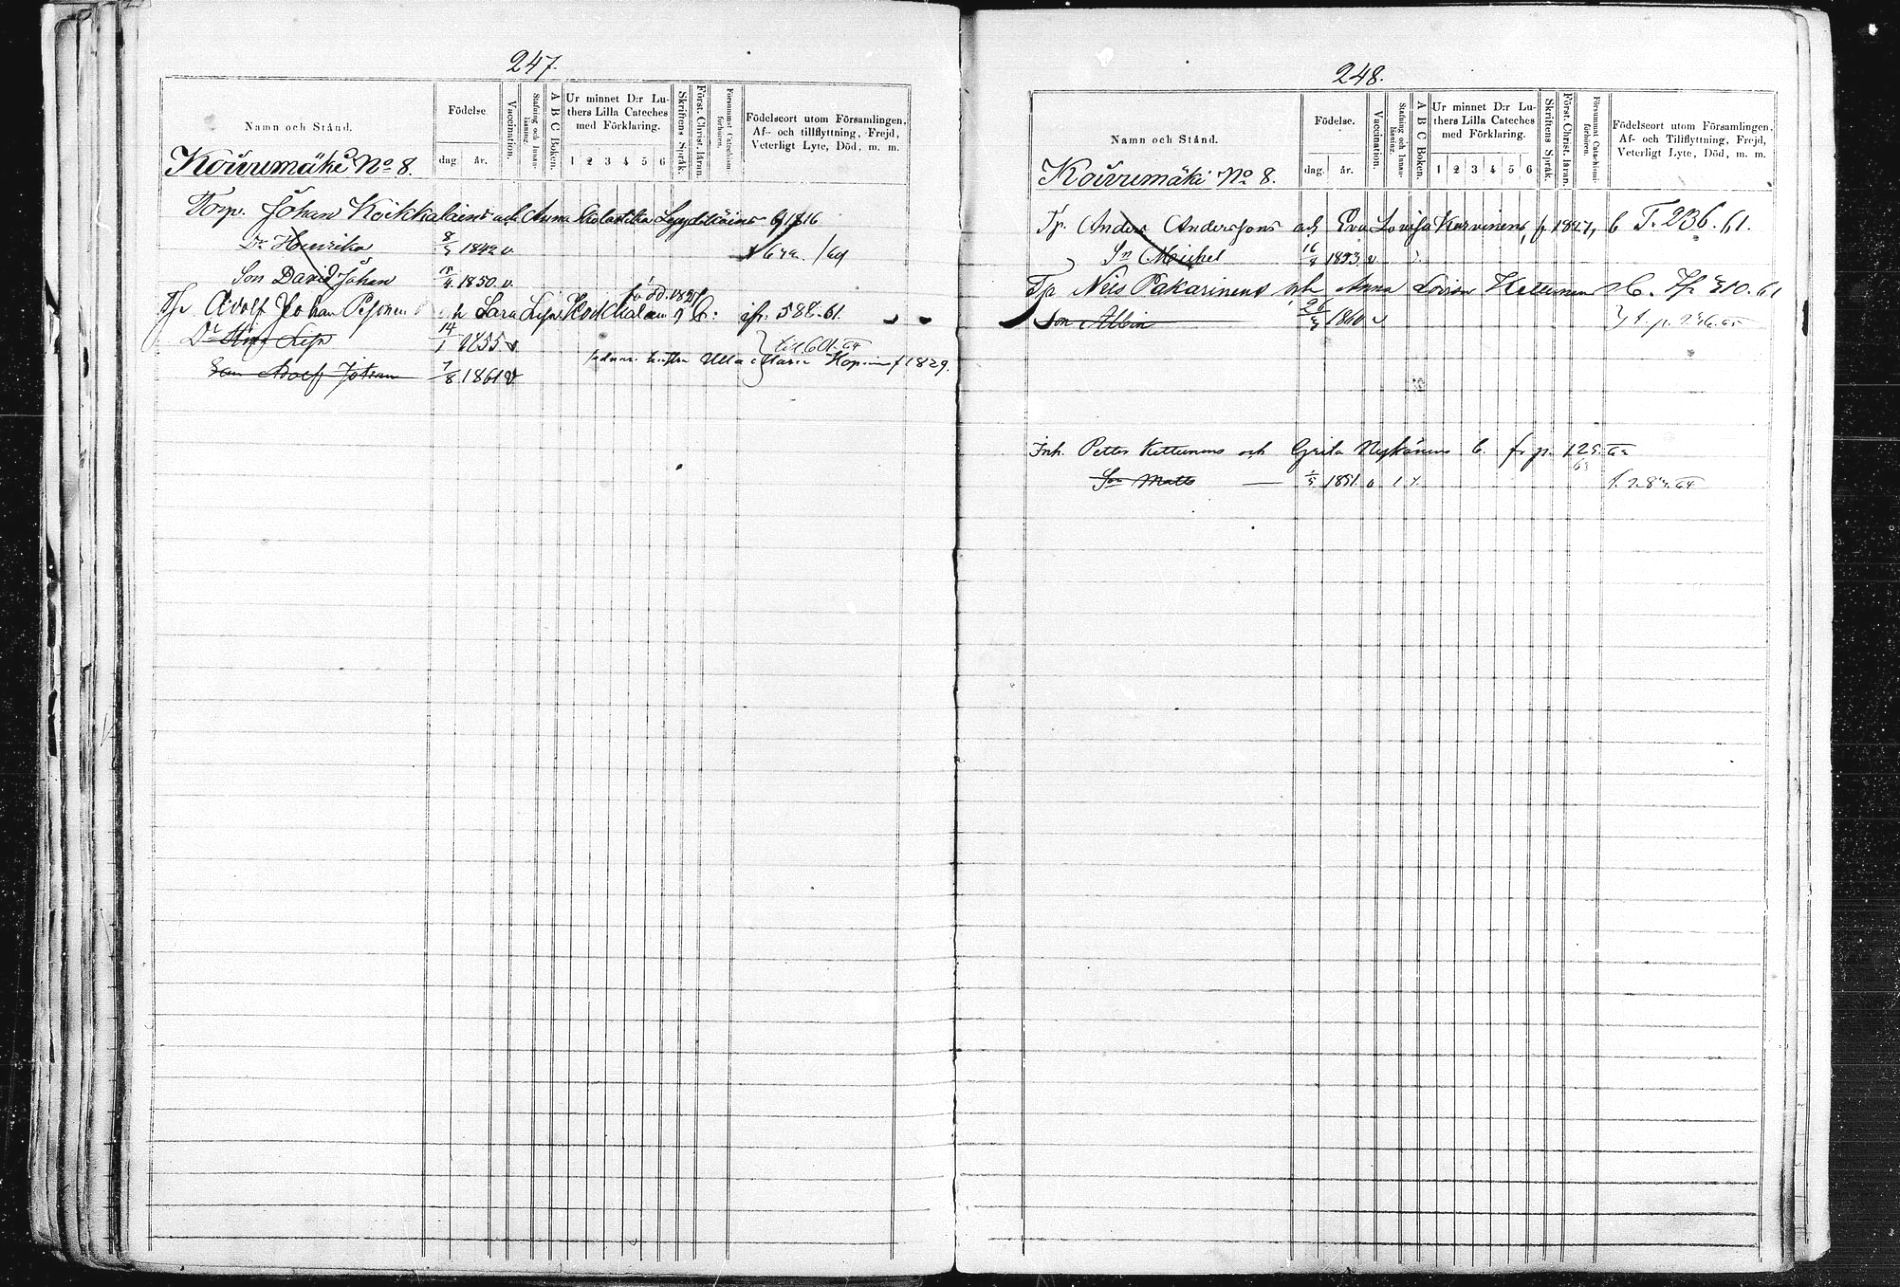 247.
Namn och Stånd.
Födelse
dag. år.
Vaccination.
Stafning och Innan-läsning.
A B C Boken.
Ur minnet D:r Lu-
thers Lilla Cateches
med Förklaring.
1 2 3 4 5 6
Skriftens Språk.
Först. Christ. läran.
Försummat Catechismi-förhören.
Födelseort utom Församlingen,
Af- och tillflyttning, Frejd,
Veterligt Lyte, Död, m. m.
Koivumäki No 8.
Torp. Johan Koikkalains och Anna Skolastika Lyydikäins 1816
Dr Henrika 8/3 1842 v
Son David Johan /4 1850. v.
född. 1827
Tfr Adolf Johan Pesonen och Sara Lisa Koikkalain ifr. 582.61.
Dr Lisa 14/1 1855 v. till 601.64
Son Adolf Johan 7/8 1861 v hustru Ulla Maria f 1829.
248.
Namn och Stånd.
Födelse.
dag. år.
Vaccination.
Stafning och Innan-läsning.
A B C Boken.
Ur minnet D:r Lu-
thers Lilla Cateches
med Förklaring.
1 2 3 4 5 6
Skriftens Språk.
Först. Christ. läran.
Försummat Catechismi-förhören.
Födelseort utom Församlingen,
Af- och Tillflyttning, Frejd,
Veterligt Lyte, Död, m. m.
Koivumäki No 8.
Tp. Anders Anderssons och Eva Lovisa Karvinens, f 1827, b T. 236.61.
Sn Michel 16/8 1853 v
Tp Nils Pakarinens och Anna Lovisa Kettunen 310.61
Son Albin 26/3 1860 v
Inh. Petter Kettunens och Greta Nykänens b. fr p. 125
Son Matts 1/5 1851 v